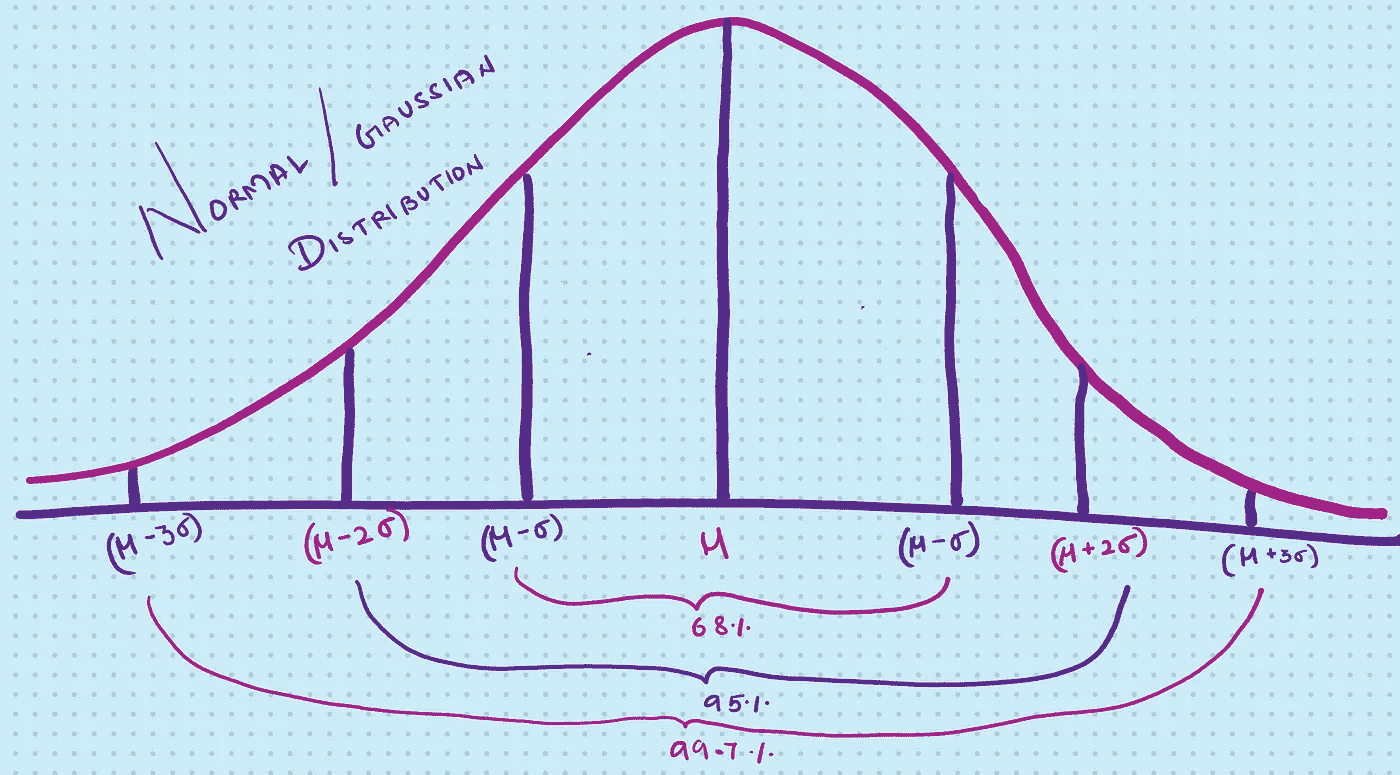 NORMAL / GAUSSIAN
DISTRIBUTION
(μ-3σ) (μ-2σ) (μ-σ) μ (μ-σ) (μ+2σ) (μ+3σ)
68%
95%
99.7%